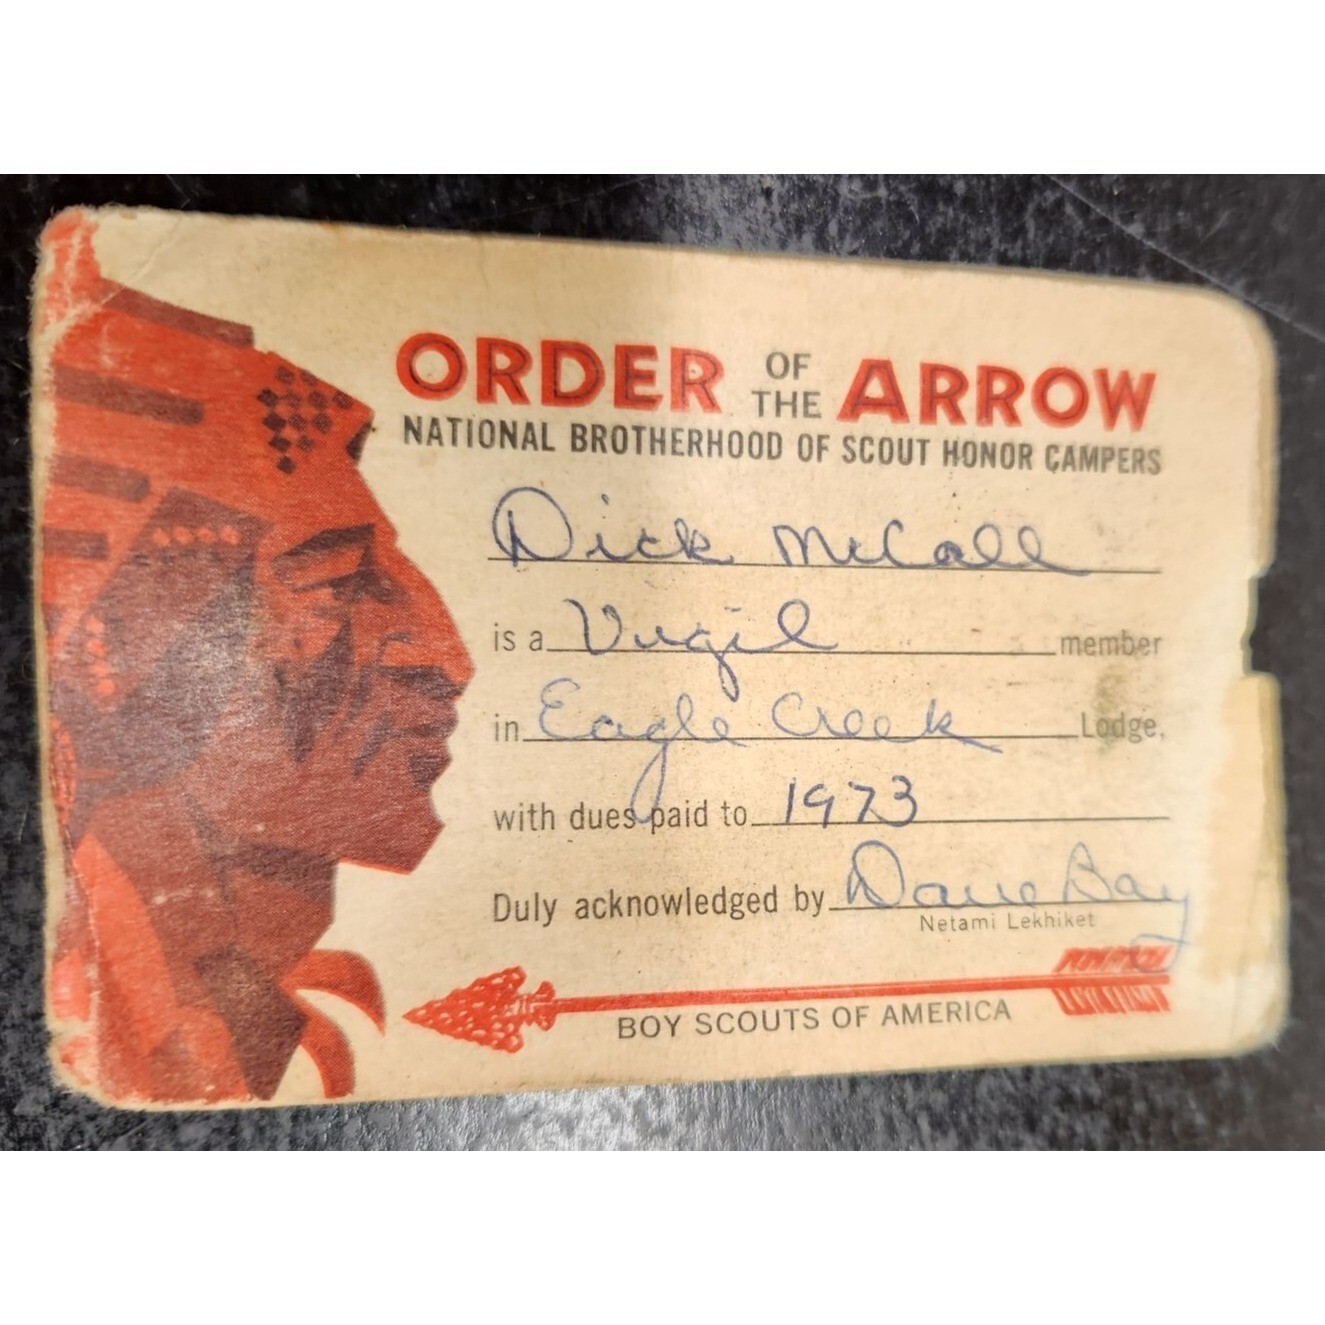 ORDER OF THE ARROW
NATIONAL BROTHERHOOD OF SCOUT HONOR CAMPERS
Dick McCall
is a Vigil member
in Eagle Creek Lodge,
with dues paid to 1973
Duly acknowledged by Dave Bay
Netami Lekhiket
BOY SCOUTS OF AMERICA